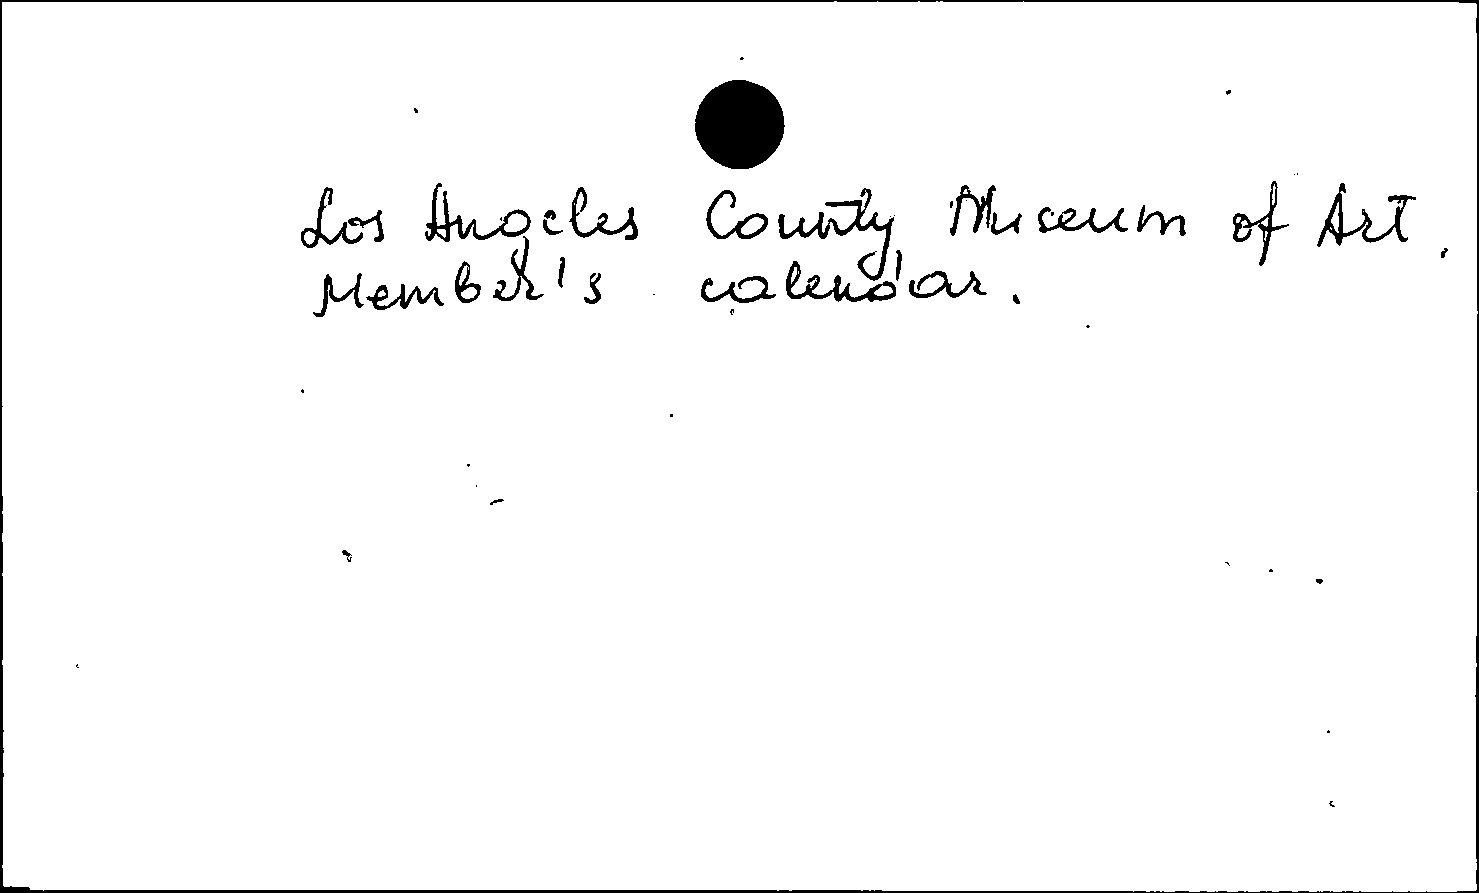 Los Angeles County Museum of Art.
Member's calendar.